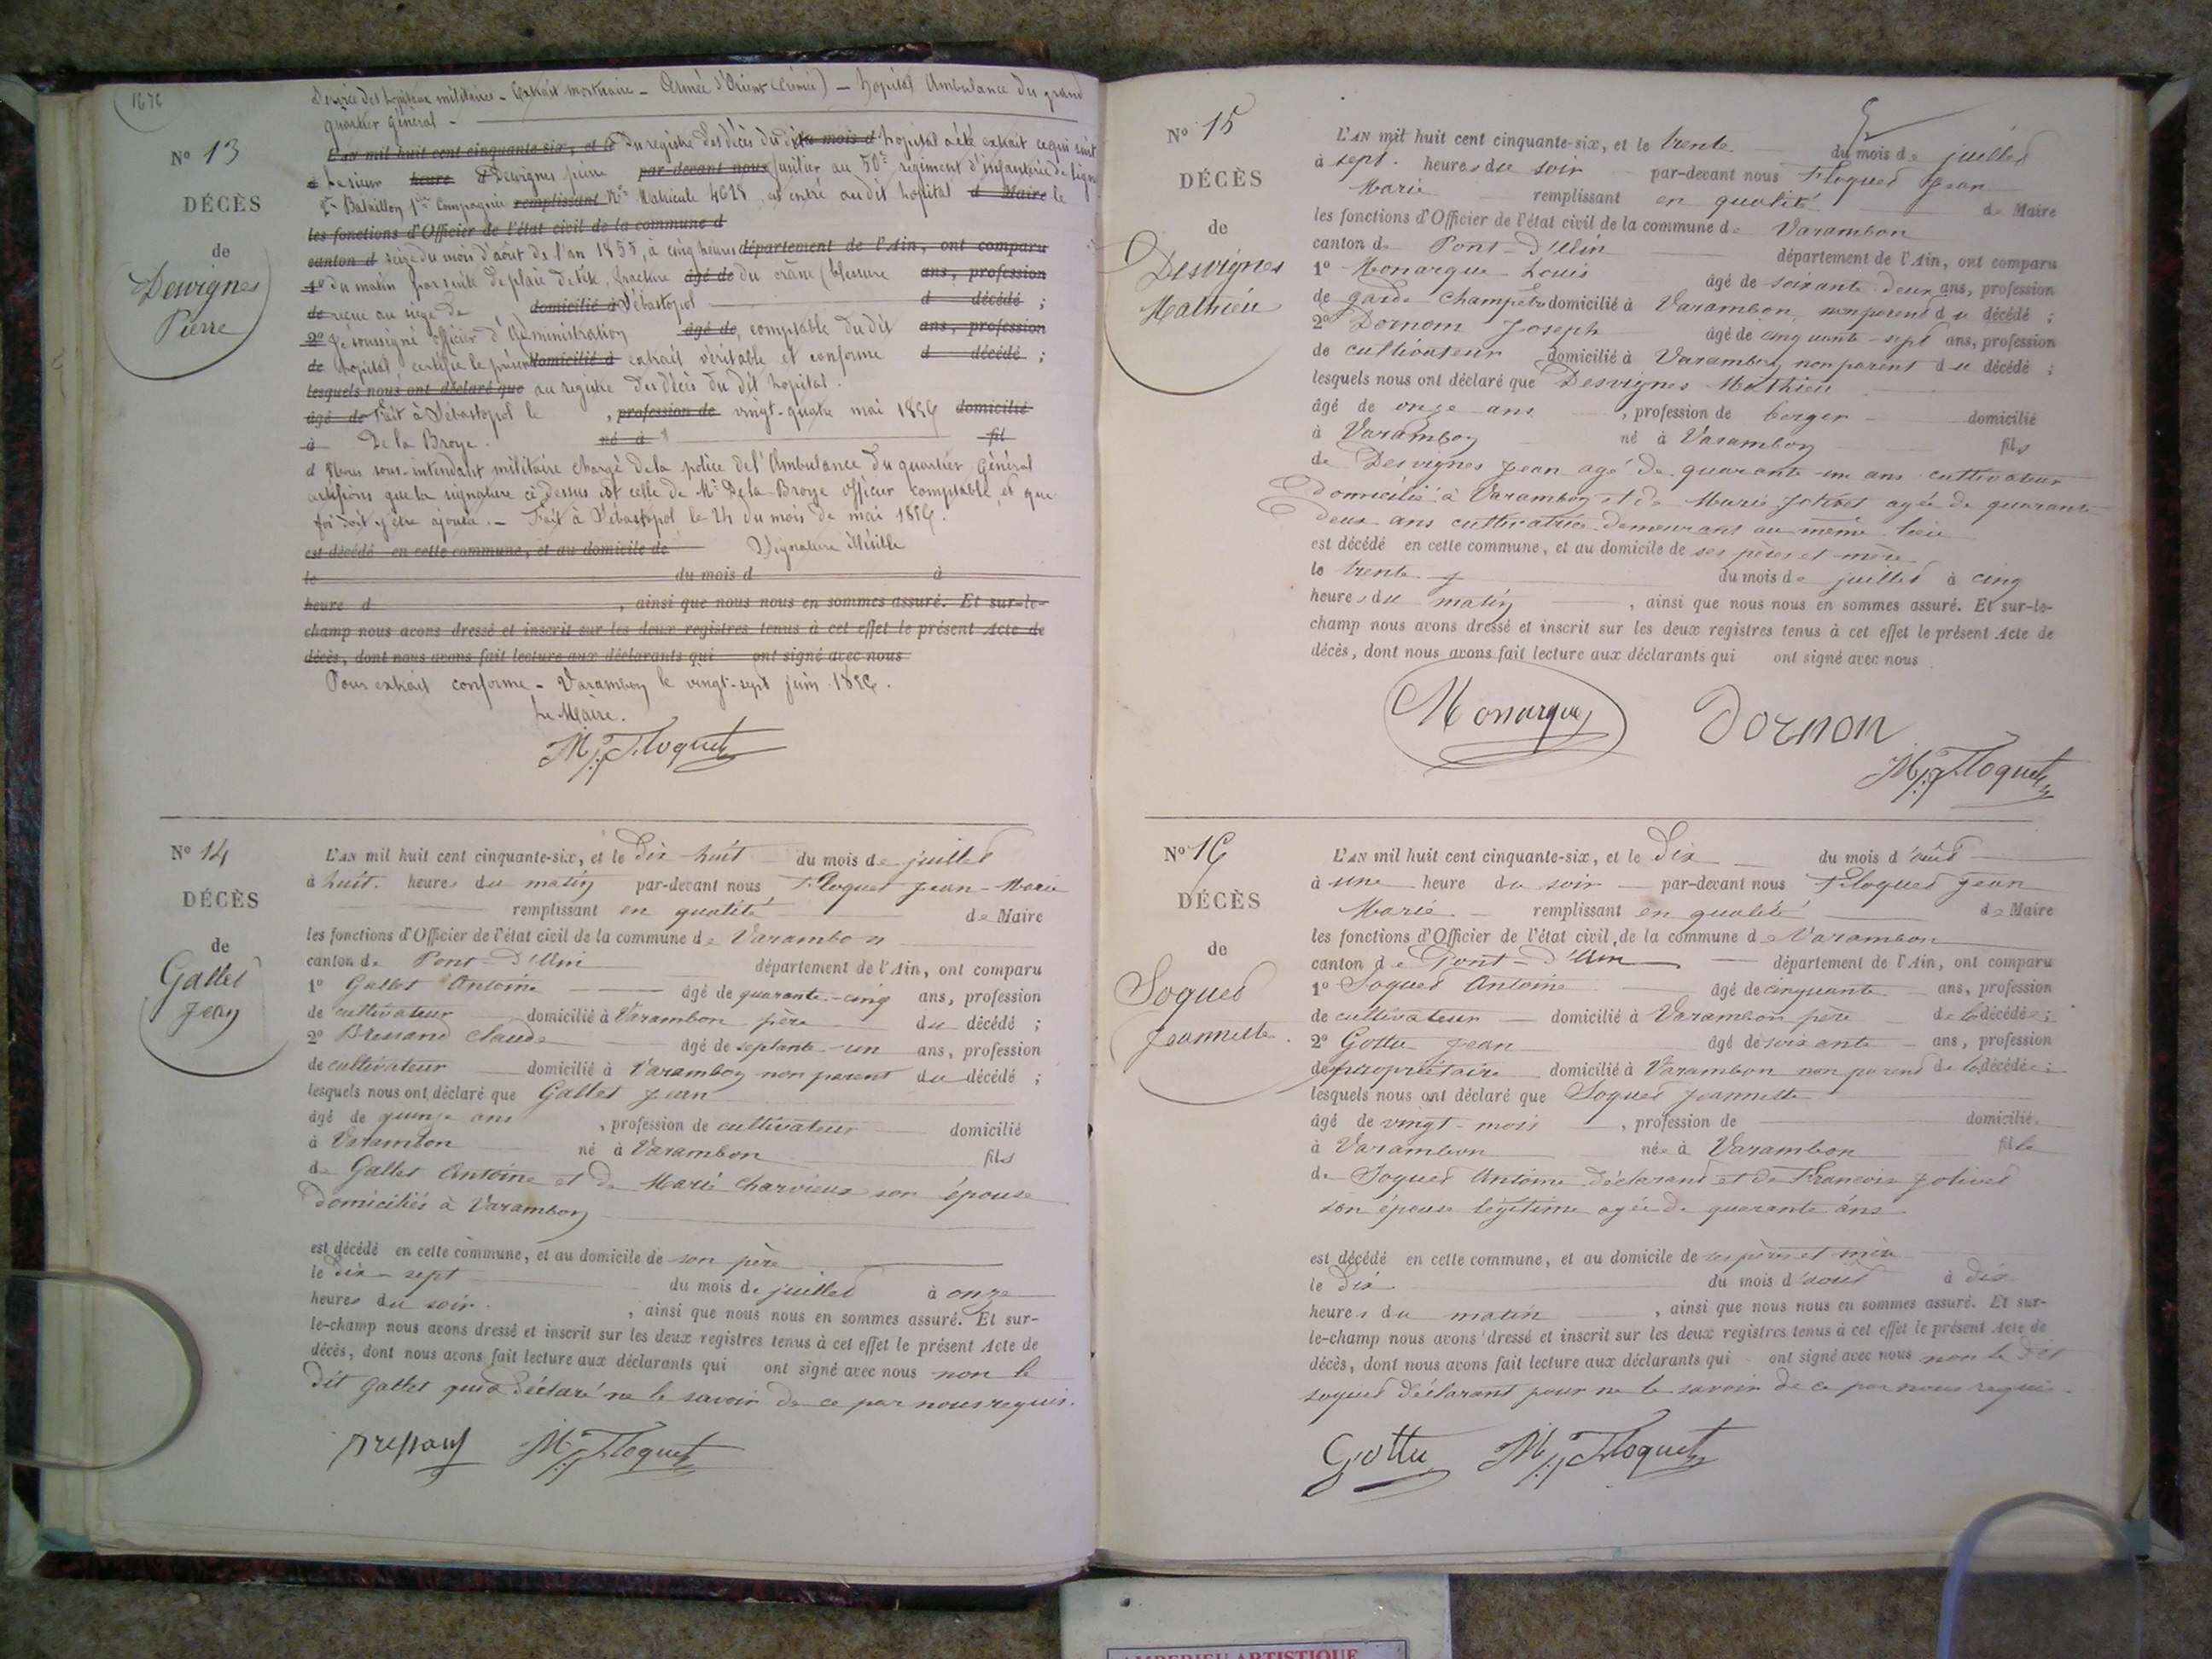 1676
Service des hopitaux militaires - Extrait mortuaire - Armée d'Orient (Crimée) - hopital Ambulance du grand
quartier général -
N° 13
DÉCÈS
de
Desvignes
Pierre
L'AN mil huit cent cinquante-six, et l Du registre des décès du dit du mois d hopital a été extrait ce qui suit
à Le sieur heure d Desvignes pierre par-devant nous fusilier au 50e régiment d'infanterie de ligne
Bataillon 1ère Compagnie remplissant No Matricule 4628 est entré au dit hopital d Maire le
les fonctions d'Officier de l'état civil de la commune d
canton d seize du mois d'août de l'an 1855, à cinq heures département de l'Ain, ont comparu
1° du matin par suite de plaie de tête, fracture âgé de du crâne (blessure ans, profession
de reçue au siège de domicilié à Sébastopol d décédé ;
2° Je soussigné officier d'administration âgé de comptable du dit ans, profession
de hopital certifie le présent domicilié à extrait véritable et conforme d décédé ;
lesquels nous ont déclaré que au registre des décès du dit hopital.
âgé de Fait à Sébastopol le , profession de vingt-quatre mai 1856 domicilié
à De la Broye. né à fil
d Nous sous-intendant militaire chargé de la police de l'Ambulance du quartier Général
certifions que la signature ci dessus est celle de Mr De la Broye officier comptable et que
foi doit y être ajouta. - Fait à Sébastopol le 24 du mois de mai 1856.
est décédé en cette commune, et au domicile de Signature illisible
le du mois d à
heure d , ainsi que nous nous en sommes assuré. Et sur-le-
champ nous avons dressé et inscrit sur les deux registres tenus à cet effet le présent Acte de
décès, dont nous avons fait lecture aux déclarants qui ont signé avec nous
Pour extrait conforme - Varambon le vingt-sept juin 1856.
Le Maire.
M J Floquet
N° 14
DÉCÈS
de
Gallet
Jean
L'AN mil huit cent cinquante-six, et le Dix huit du mois de juillet
à huit heures du matin par-devant nous Floquet Jean-Marie
remplissant en qualité de Maire
les fonctions d'Officier de l'état civil de la commune de Varambon
canton de Pont-d'Ain département de l'Ain, ont comparu
1° Gallet Antoine âgé de quarante-cinq ans, profession
de cultivateur domicilié à Varambon père du décédé ;
2° Bressand Claude âgé de septante-un ans, profession
de cultivateur domicilié à Varambon non parent du décédé ;
lesquels nous ont déclaré que Gallet Jean
âgé de quinze ans , profession de cultivateur domicilié
à Varambon né à Varambon fils
de Gallet Antoine et de Marie Charvieux son épouse
Domiciliés à Varambon
est décédé en cette commune, et au domicile de son père
le Dix-sept du mois de juillet à onze
heures du soir , ainsi que nous nous en sommes assuré. Et sur-
le-champ nous avons dressé et inscrit sur les deux registres tenus à cet effet le présent Acte de
décès, dont nous avons fait lecture aux déclarants qui ont signé avec nous non le
dit Gallet qui a déclaré ne le savoir de ce par nous requis.
Bressand M J Floquet
N° 15
DÉCÈS
de
Desvignes
Mathieu
L'AN mil huit cent cinquante-six, et le trente du mois de juillet
à sept heures du soir par-devant nous Floquet Jean
Marie remplissant en qualité de Maire
les fonctions d'Officier de l'état civil de la commune de Varambon
canton de Pont-d'Ain département de l'Ain, ont comparu
1° Monarque Louis âgé de soixante deux ans, profession
de garde champêtre domicilié à Varambon non parent du décédé ;
2° Dornom Joseph âgé de cinquante-sept ans, profession
de cultivateur domicilié à Varambon non parent du décédé ;
lesquels nous ont déclaré que Desvignes Mathieu
âgé de onze ans , profession de berger domicilié
à Varambon né à Varambon fils
de Desvignes Jean agé de quarante-un ans cultivateur
Domicilié à Varambon et de Marie agée de quarante
deux ans cultivatrice demeurant au même lieu
est décédé en cette commune, et au domicile de ses pères et mère
le trente du mois de juillet à cinq
heures du matin , ainsi que nous nous en sommes assuré. Et sur-le-
champ nous avons dressé et inscrit sur les deux registres tenus à cet effet le présent Acte de
décès, dont nous avons fait lecture aux déclarants qui ont signé avec nous
Monarque Dornon
M J Floquet
N° 16
DÉCÈS
de
Soquet
Jeannette
L'AN mil huit cent cinquante-six, et le Dix du mois d'août
à une heure du soir par-devant nous Floquet Jean
Marie remplissant en qualité de Maire
les fonctions d'Officier de l'état civil de la commune de Varambon
canton de Pont-d'Ain département de l'Ain, ont comparu
1° Soquet Antoine âgé de cinquante ans, profession
de cultivateur domicilié à Varambon père de la décédée ;
2° Gottu Jean âgé de soixante ans, profession
de propriétaire domicilié à Varambon non parent de la décédée ;
lesquels nous ont déclaré que Soquet Jeannette
âgé de vingt-mois , profession de domicilié
à Varambon née à Varambon fille
de Soquet Antoine déclarant et de Francoise Jolivet
son épouse légitime agée de quarante ans
est décédé en cette commune, et au domicile de ses pères et mère
le Dix du mois d'août à dix
heures du matin , ainsi que nous nous en sommes assuré. Et sur-
le-champ nous avons dressé et inscrit sur les deux registres tenus à cet effet le présent Acte de
décès, dont nous avons fait lecture aux déclarants qui ont signé avec nous non le dit
soquet déclarant pour ne le savoir de ce par nous requis.
Gottu M J Floquet
AMBERIEU ARTISTIQUE